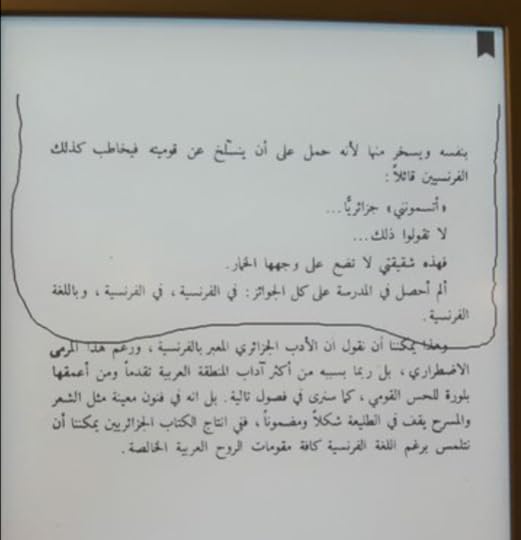 بنفسه ويسخر منها لأنه حمل على أن ينسلخ عن قوميته فيخاطب كذلك
الفرنسيين قائلاً :
«أتسمونني» جزائريًّا...
لا تقولوا ذلك...
فهذه شقيقتي لا تضع على وجهها الخمار.
ألم أحصل في المدرسة على كل الجوائز : في الفرنسية ، في الفرنسية ، وباللغة
الفرنسية .
وهذا يمكننا أن نقول ان الأدب الجزائري المعبر بالفرنسية ، ورغم هذا المرمى
الاضطراري ، بل ربما بسببه من أكثر آداب المنطقة العربية تقدماً ومن أعمقها
بلورة للحس القومي ، كما سنرى في فصول تالية . بل انه في فنون معينة مثل الشعر
والمسرح يقف في الطليعة شكلاً ومضموناً ، ففي انتاج الكتاب الجزائريين يمكننا أن
نتلمس برغم اللغة الفرنسية كافة مقومات الروح العربية الخالصة .